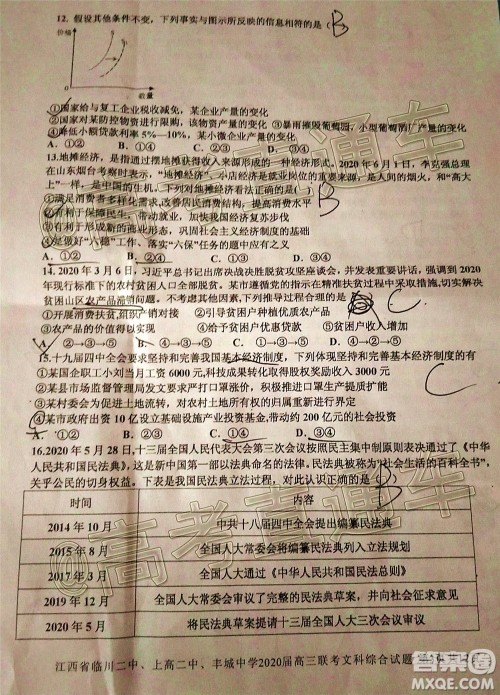 12. 假设其他条件不变，下列事实与图示所反映的信息相符的是（ B
价格
数量
①国家给与复工企业税收减免，某企业产量的变化
②国家对某防控物资进行限购，该物资产量的变化 ③暴雨摧毁葡萄园，小型葡萄酒厂产量的变化
④降低小额贷款利率 5%—10%，某小微企业产量的变化
A. ①② B. ①④ C. ②③ D. ③④
13.地摊经济，是指通过摆地摊获得收入来源而形成的一种经济形式。2020 年 6 月 1 日，李克强总理
在山东烟台考察时表示，“地摊经济、小店经济是就业岗位的重要来源，是人间的烟火，和“高大
上”一样，是中国的生机。下列对地摊经济看法正确的是（ B
①满足消费者多样化需求，改善居民消费结构，提高消费水平
②有利于保障民生，带动就业，巩固国民经济复苏步伐
③有利于形成新的商业形态，巩固社会主义经济制度的基础
④是做好“六稳”工作、落实“六保”任务的题中应有之义
A. ①③ B. ②④ C. ①④ D. ②③
14. 2020 年 3 月 6 日，习近平总书记出席决战决胜脱贫攻坚座谈会，并发表重要讲话，强调到 2020
年现行标准下的农村贫困人口全部脱贫。某市遵循党的指示在精准扶贫过程中采取措施，切实解决
贫困山区农产品滞销问题。不考虑其他因素，下列传导过程合理的是（ C
①开展消费扶贫，组织产销对接 ②引导贫困户种植优质农产品
③农产品的价值得以实现 ④给予贫困户优惠贷款 ⑤贫困户收入增加
A. ①③⑤ B. ②③⑤ C. ①②③ D. ④②⑤
15.十九届四中全会要求坚持和完善我国基本经济制度，下列体现坚持和完善基本经济制度的有
①某国企职工小刘当月工资 6000 元，科技成果转化取得股权奖励收入 3000 元 C
②某县市场监督管理局发文要求严厉打口罩涨价，积极推进口罩生产提质扩能
③某村委会为促进土地流转，对农村土地所有权的归属重新进行界定
④某市政府出资 10 亿设立基础设施产业投资基金，带动约 200 亿元的社会投资
A. ①② B. ②③ C. ①④ D. ③④
16.2020 年 5 月 28 日，十三届全国人民代表大会第三次会议按照民主集中制原则表决通过了《中华
人民共和国民法典》，这是新中国第一部以法典命名的法律。民法典被称为“社会生活的百科全书”，
关乎公民的切身权益。下表是我国民法典立法过程，对此认识正确的 B
时间 内容
2014 年 10 月 中共十八届四中全会提出编纂民法典
2015 年 8 月 全国人大常委会将编纂民法典列入立法规划
2017 年 3 月 全国人大通过《中华人民共和国民法总则》
2019 年 12 月 全国人大常委会审议了完整的民法典草案，并向社会征求意见
2020 年 5 月 将民法典草案提请十三届全国人大三次会议审议
江西省临川二中、上高二中、丰城中学2020届高三联考文科综合试题